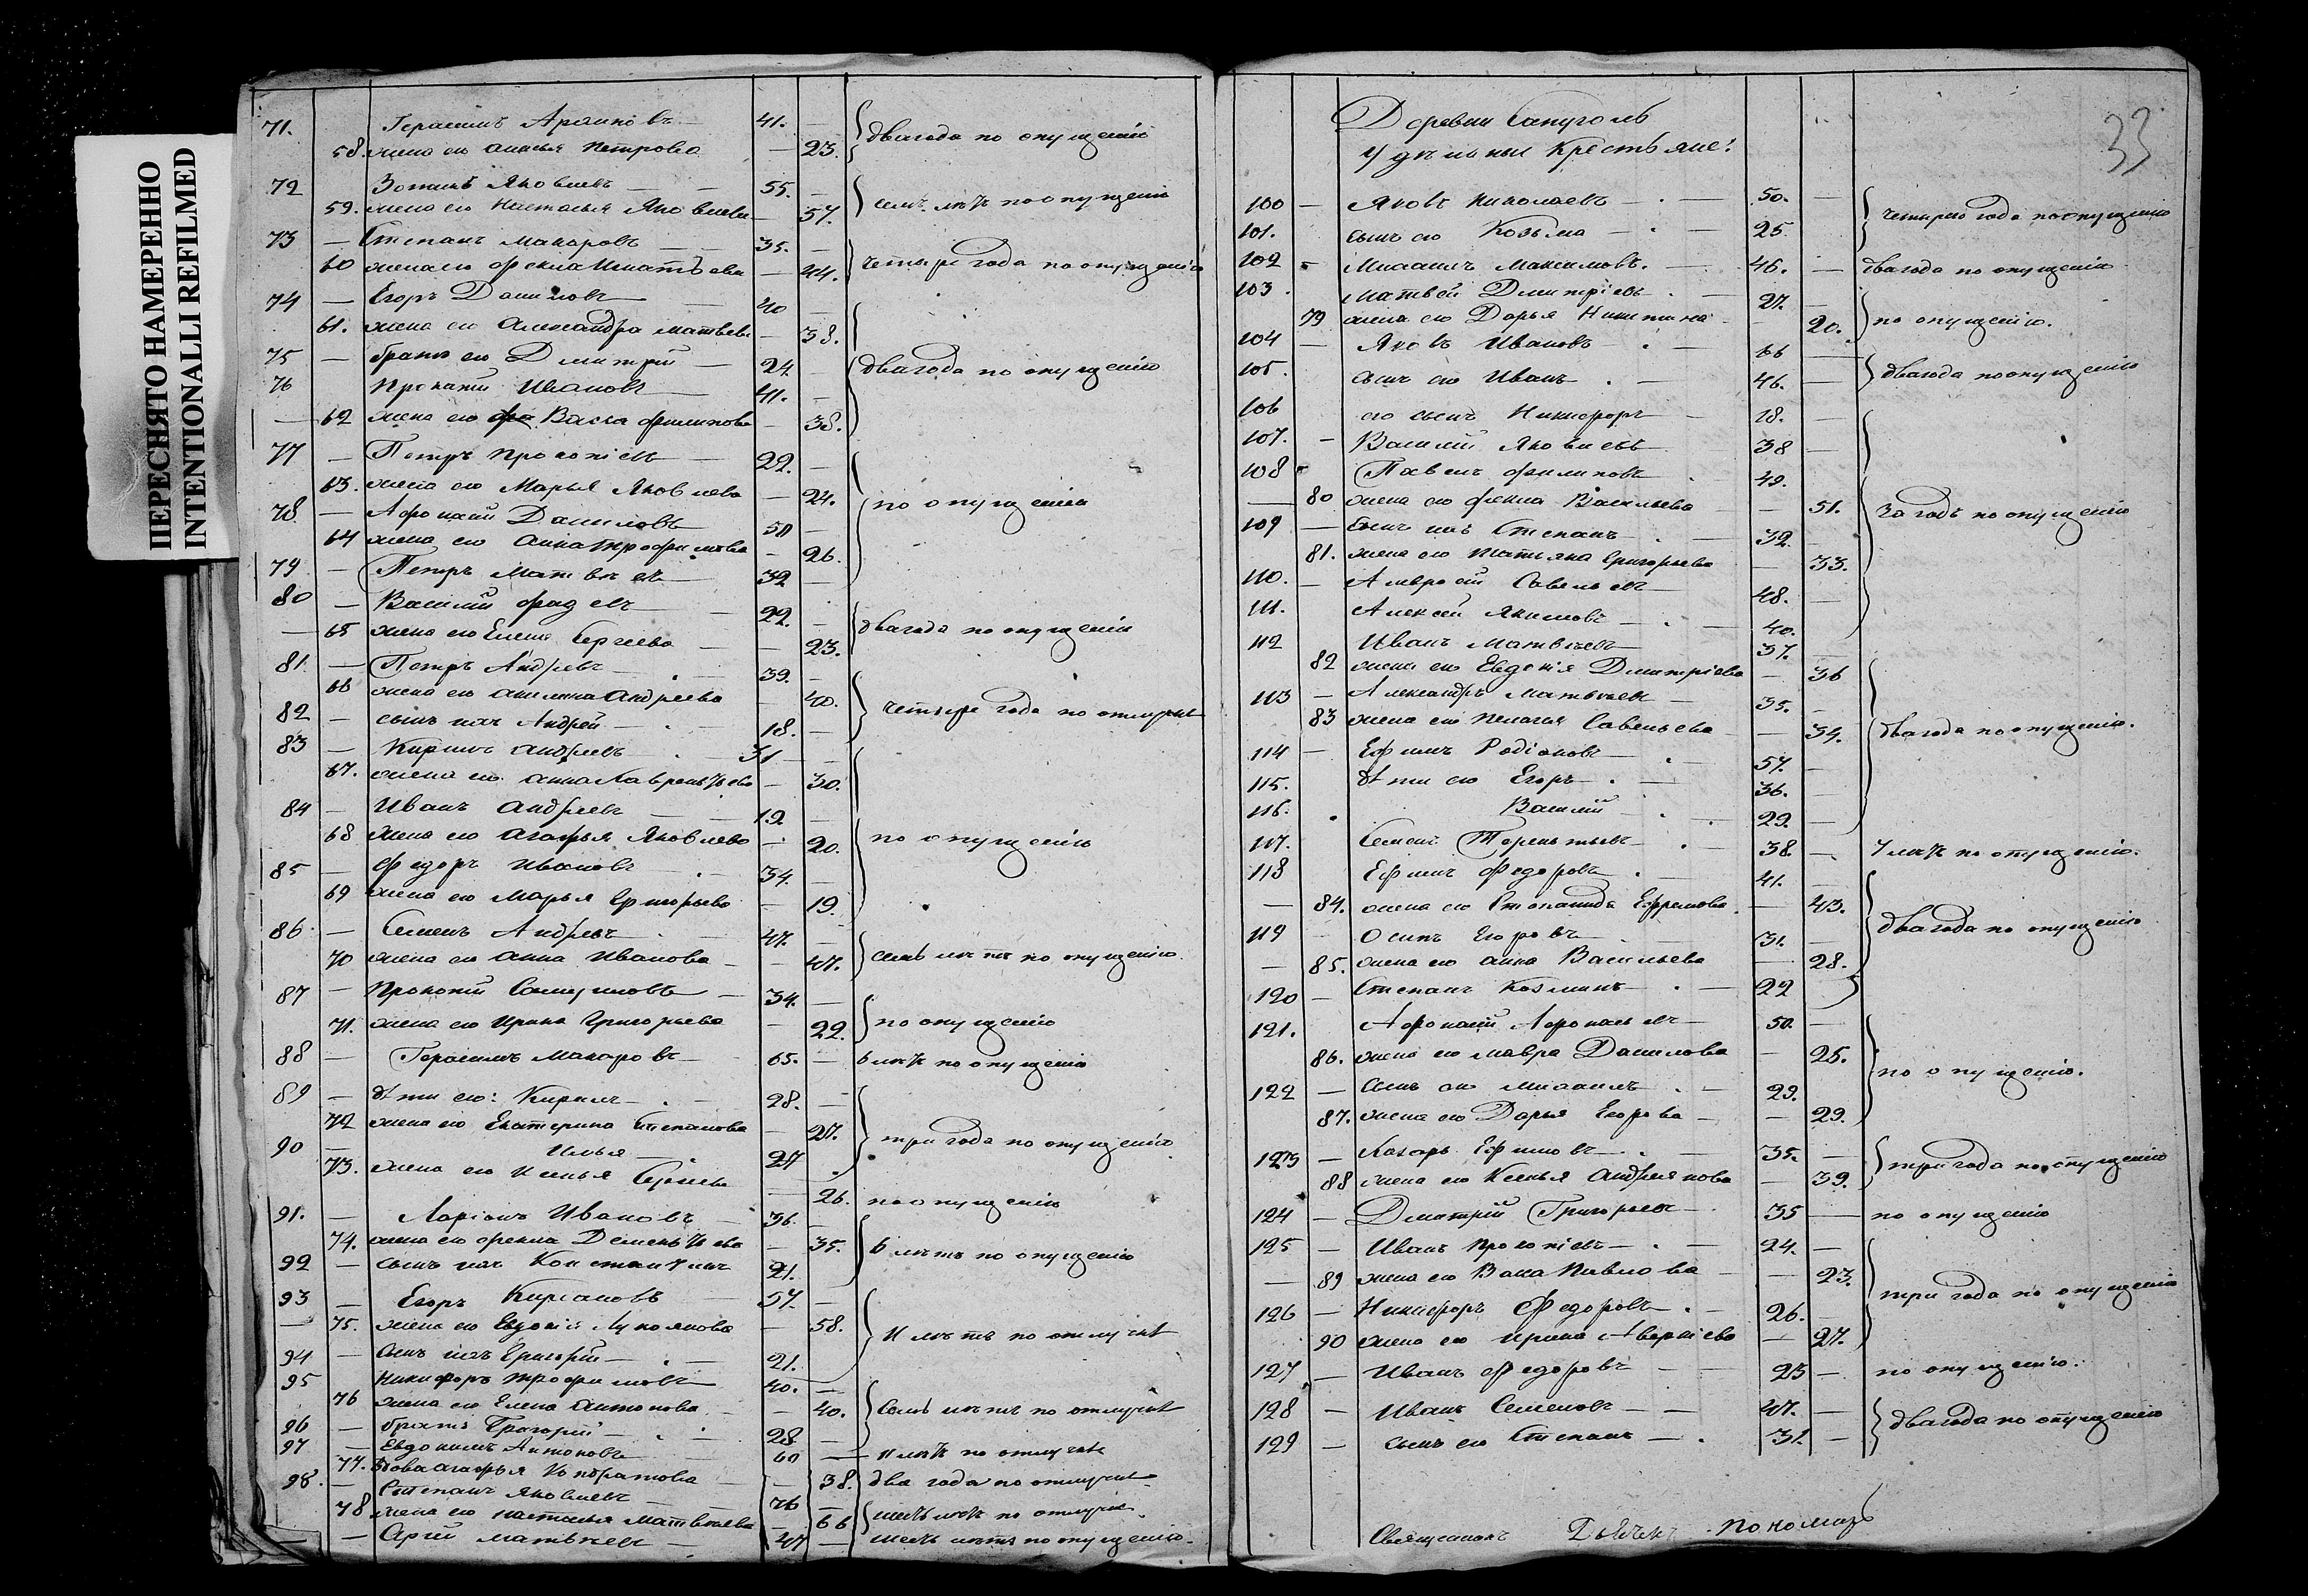 ПЕРЕСНЯТО НАМЕРЕННО
INTENTIONALLI REFILMED
71. Герасимъ 41. —
58. жена его Анисья Петрова — 23. два года по опущенію
72 Зотикъ Яковлевъ — 55. —
59. жена его Настасья Яковлева — 57. семь лѣтъ по опущенію
73 — Степанъ Макаровъ — 35. —
60 жена его Фекла Игнатьева — 44. четыре года по опущенію
74 — Егоръ Даниловъ 40 —
61. жена его Александра Матвѣева — 38.
75 — братъ его Дмитрій — 24 — два года по опущенію
76 Прокопій Ивановъ 41. —
— 62 жена его Васса Филипова — 38.
77 — Петръ Прокопіевъ — 22. —
63. жена его Марья Яковлева — 24. по опущенію
78 — Афонасій Даниловъ 50 —
64 жена его Анна Трофимова — 26.
79 — Петръ Матвѣевъ 32 —
80 — Василій Фадѣевъ — 22. —
— 65 жена его Елена Сергеева — 23. два года по опущенію
81. — Петръ Андреевъ . 39. —
66 жена его Акилина Андреева — 40.
82 — сынъ ихъ Андрей — 18. — четыре года по отлучкѣ
83 — Кирилъ Андреевъ . 31 —
67. жена его Анна Лаврентьева — 30.
84 — Иванъ Андреевъ 19. —
68 жена его Агафья Яковлева — 20. по опущенію
85 — Федоръ Ивановъ . 34. —
69 жена его Марья Григорьева — 19.
86 — Семенъ Андреевъ . 47. —
70 жена его Анна Иванова — 47. семь лѣтъ по опущенію.
87 — Прокопій Самуиловъ — 34. —
71. жена его Ирина Григорьева — 22. по опущенію
88 — Герасимъ Макаровъ — 65. — 6 лѣтъ по опущенію
89 — дѣти его: Кирилъ — . 28. —
72 жена его Екатерина Степанова — 27. три года по опущенію
90 — Илья — . 27 .
73. жена его Ксенья Сергеева — 26. по опущенію
91. — Ларіонъ Ивановъ — 36. —
74. жена его Фекла Дементьева — 35. 6 лѣтъ по опущенію
92 — сынъ ихъ Константинъ 21.
93 — Егоръ Киріановъ 57. —
— 75. жена его Евдокія Лукоянова — 58. 11 лѣтъ по отлучкѣ
94 — сынъ ихъ Григорій — . — 21.
95 Никифоръ Трофимовъ 40. —
76 жена его Елена Антонова — 40. семь лѣтъ по отлучкѣ
96 — братъ Григорій — . 28 —
97 — Евдокимъ Антоновъ 60 — 11 лѣтъ по отлучкѣ
77. вдова Агафья Кондратова — 38. два года по отлучкѣ
98. — Степанъ Яковлевъ 76 —
78 жена его Настасья Матвѣева — 66 лѣтъ по отлучкѣ.
— — Матвѣевъ — 47 — лѣтъ по опущенію.
33
Деревни Сапуголь
Удѣльныи Крестьяне:
100 — Яковъ Николаевъ — . — 50. —
101. сынъ его Козьма — . — 25 четыре года по опущенію
102 Михаилъ Максимовъ. — 46. — два года по опущенію
103. Матвей Дмитріевъ . — 27. —
79 жена его Дарья Никитина — 20. по опущенію.
104 — Яковъ Ивановъ . — 66 —
105. сынъ его Иванъ . — 46. — два года по опущенію
106 его сынъ Никифоръ — 18. —
107. — Василій Яковлевъ 38 —
108 Павелъ Филиповъ . 49. —
— 80 жена его Фекла Васильева — 51. За годъ по опущенію
109 — сынъ ихъ Степанъ . — 32. —
81. жена его Татьяна Григорьева — 33.
110. — Амвросій Савельевъ 48. —
111. Алексей Якимовъ — . — 40. —
112 Иванъ Матвѣевъ 37. —
82 жена его Евдокія Дмитріева — 36
113 — Александръ Матвѣевъ — 35. —
83 жена его Пелагея Савельева — 34. два года по опущенію.
114 — Ефимъ Родіоновъ . 57. —
115. дѣти его Егоръ . — 36. —
116. . Василій . 29. —
117. Семенъ Терентьевъ . — 38. — 7 лѣтъ по опущенію.
118 Ефимъ Федоровъ . 41. —
— 84. жена его Степанида Ефремова. — 43.
119 Осипъ Егоровъ . — 31. — два года по опущенію
— 85. жена его Анна Васильева — 28.
120 — Степанъ Козминъ . — 22
121. Афонасій Афонасьевъ — 50. —
86. жена его Мавра Данилова — 25.
122 — сынъ его Михаилъ . — 29. по опущенію.
87. жена его Дарья Егорова — — 29.
123 — Лазарь Ефимовъ — . — 35. —
88 жена его Ксенья Андреянова — 39. три года по опущенію
124 — Дмитрій Григорьевъ — 35 — по опущенію
125 — Иванъ Прокопіевъ — . — 24. —
— 89 жена его Павлова — — 23. три года по опущенію
126 — Никифоръ Федоровъ . — 26. —
90 жена его Ирина Аверкіева — 27.
127 — Иванъ Федоровъ — 25 — по опущенію.
128 — Иванъ Семеновъ — — 47. —
129 — сынъ его Степанъ — . 31. — два года по опущенію
Священникъ Дьячекъ Пономарь